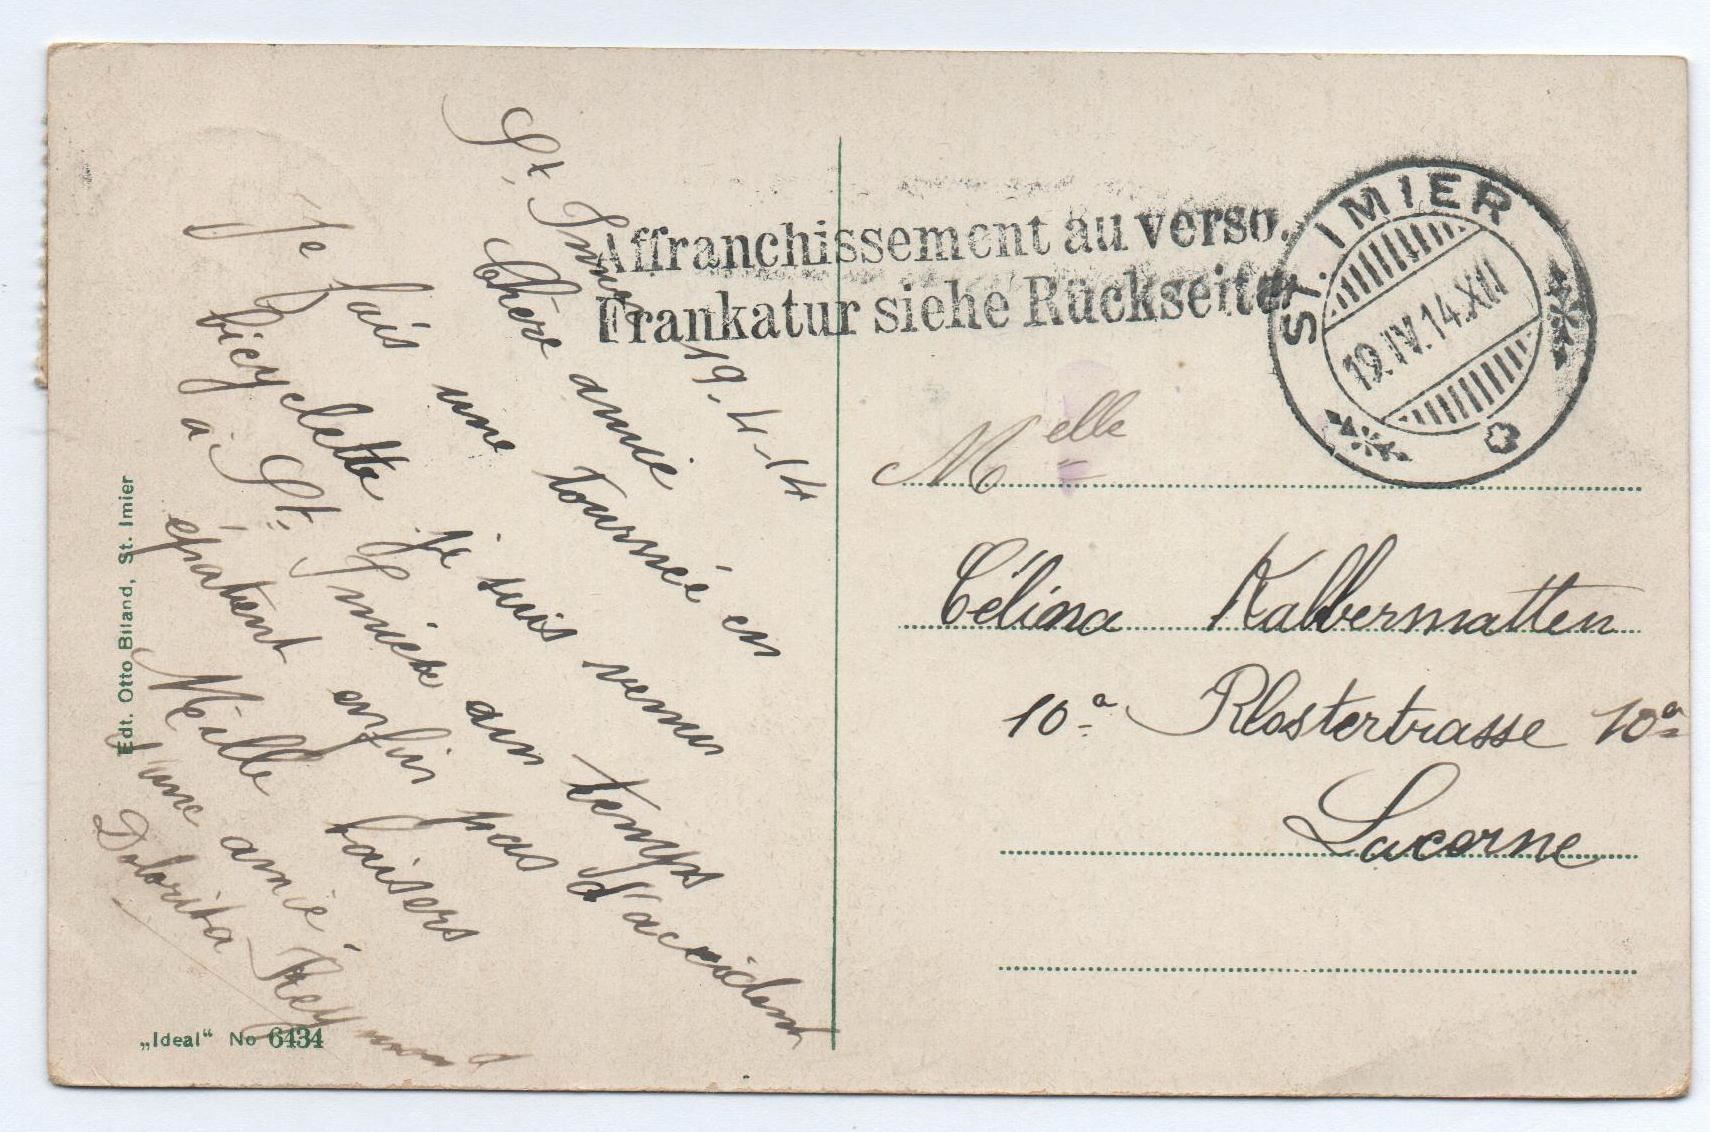 St. Imier 19-4-14
Chère amie
Je fais une tournée en
bicyclette je suis venus
à St. Imier un temps
épatent enfin pas d'accident
Mille baisers
d'une amie
Dolorita Reymond
Edt. Otto Biland, St. Imier
„Ideal“ No 6434
Affranchissement au verso.
Frankatur siehe Rückseite
ST. IMIER
19.IV.14.XII
Melle
Célina Kalbermatten
10a Klostertrasse 10a
Lucerne